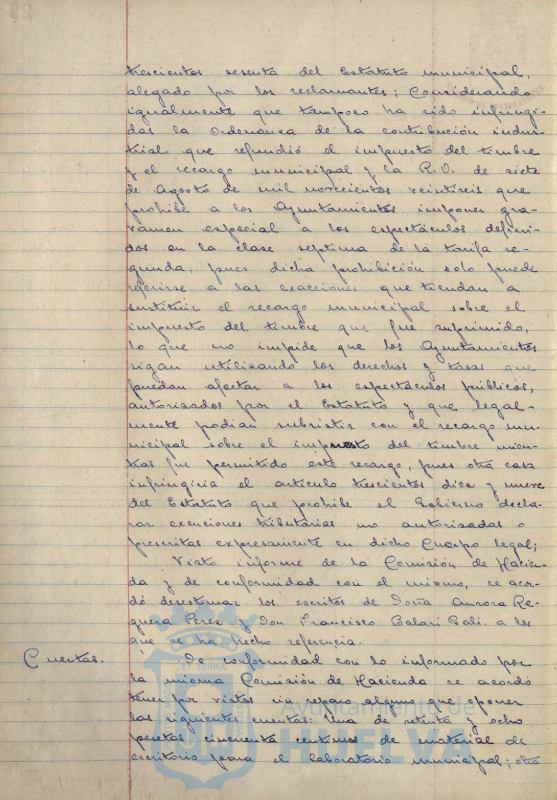 trescientos sesenta del Estatuto municipal,
alegado por los reclamantes; Considerando
igualmente que tampoco ha sido infringi-
das la Ordenanza de la contribución indus-
trial que refundió el impuesto del timbre
y el recargo municipal y la R.O. de siete
de Agosto de mil novecientos veintiseis que
prohibe a los Ayuntamientos imponer gra-
vamen especial a los espectáculos defini-
dos en la clase septima de la tarifa se-
gunda, pues dicha prohibición solo puede
referirse a las exacciones que tiendan a
sustituir el recargo municipal sobre el
impuesto del timbre que fue suprimido,
lo que no impide que los Ayuntamientos
sigan utilizando los derechos y tasas que
puedan afectar a los espectáculos públicos,
autorizados por el Estatuto y que legal-
mente podian subsistir con el recargo mu-
nicipal sobre el impuesto del timbre mien-
tras fue permitido este recargo, pues otra cosa
infringiria el articulo trescientos diez y nueve
del Estatuto que prohibe al Gobierno decla-
rar exenciones tributarias no autorizadas o
prescritas expresamente en dicho Cuerpo legal;
Visto informe de la Comisión de Hacien-
da y de conformidad con el mismo, se acor-
dó desestimar los escritos de Doña Aurora Re-
guera Perez y Don Francisco Balari Gali a los
que se ha hecho referencia.
Cuentas. De conformidad con lo informado por
la misma Comisión de Hacienda se acordó
tener por vistas sin reparo alguno que oponer
las siguientes cuentas: Una de setenta y ocho
pesetas cincuenta centimos de material de
escritorio para el laboratorio municipal; otra
Ayuntamiento de
HUELVA